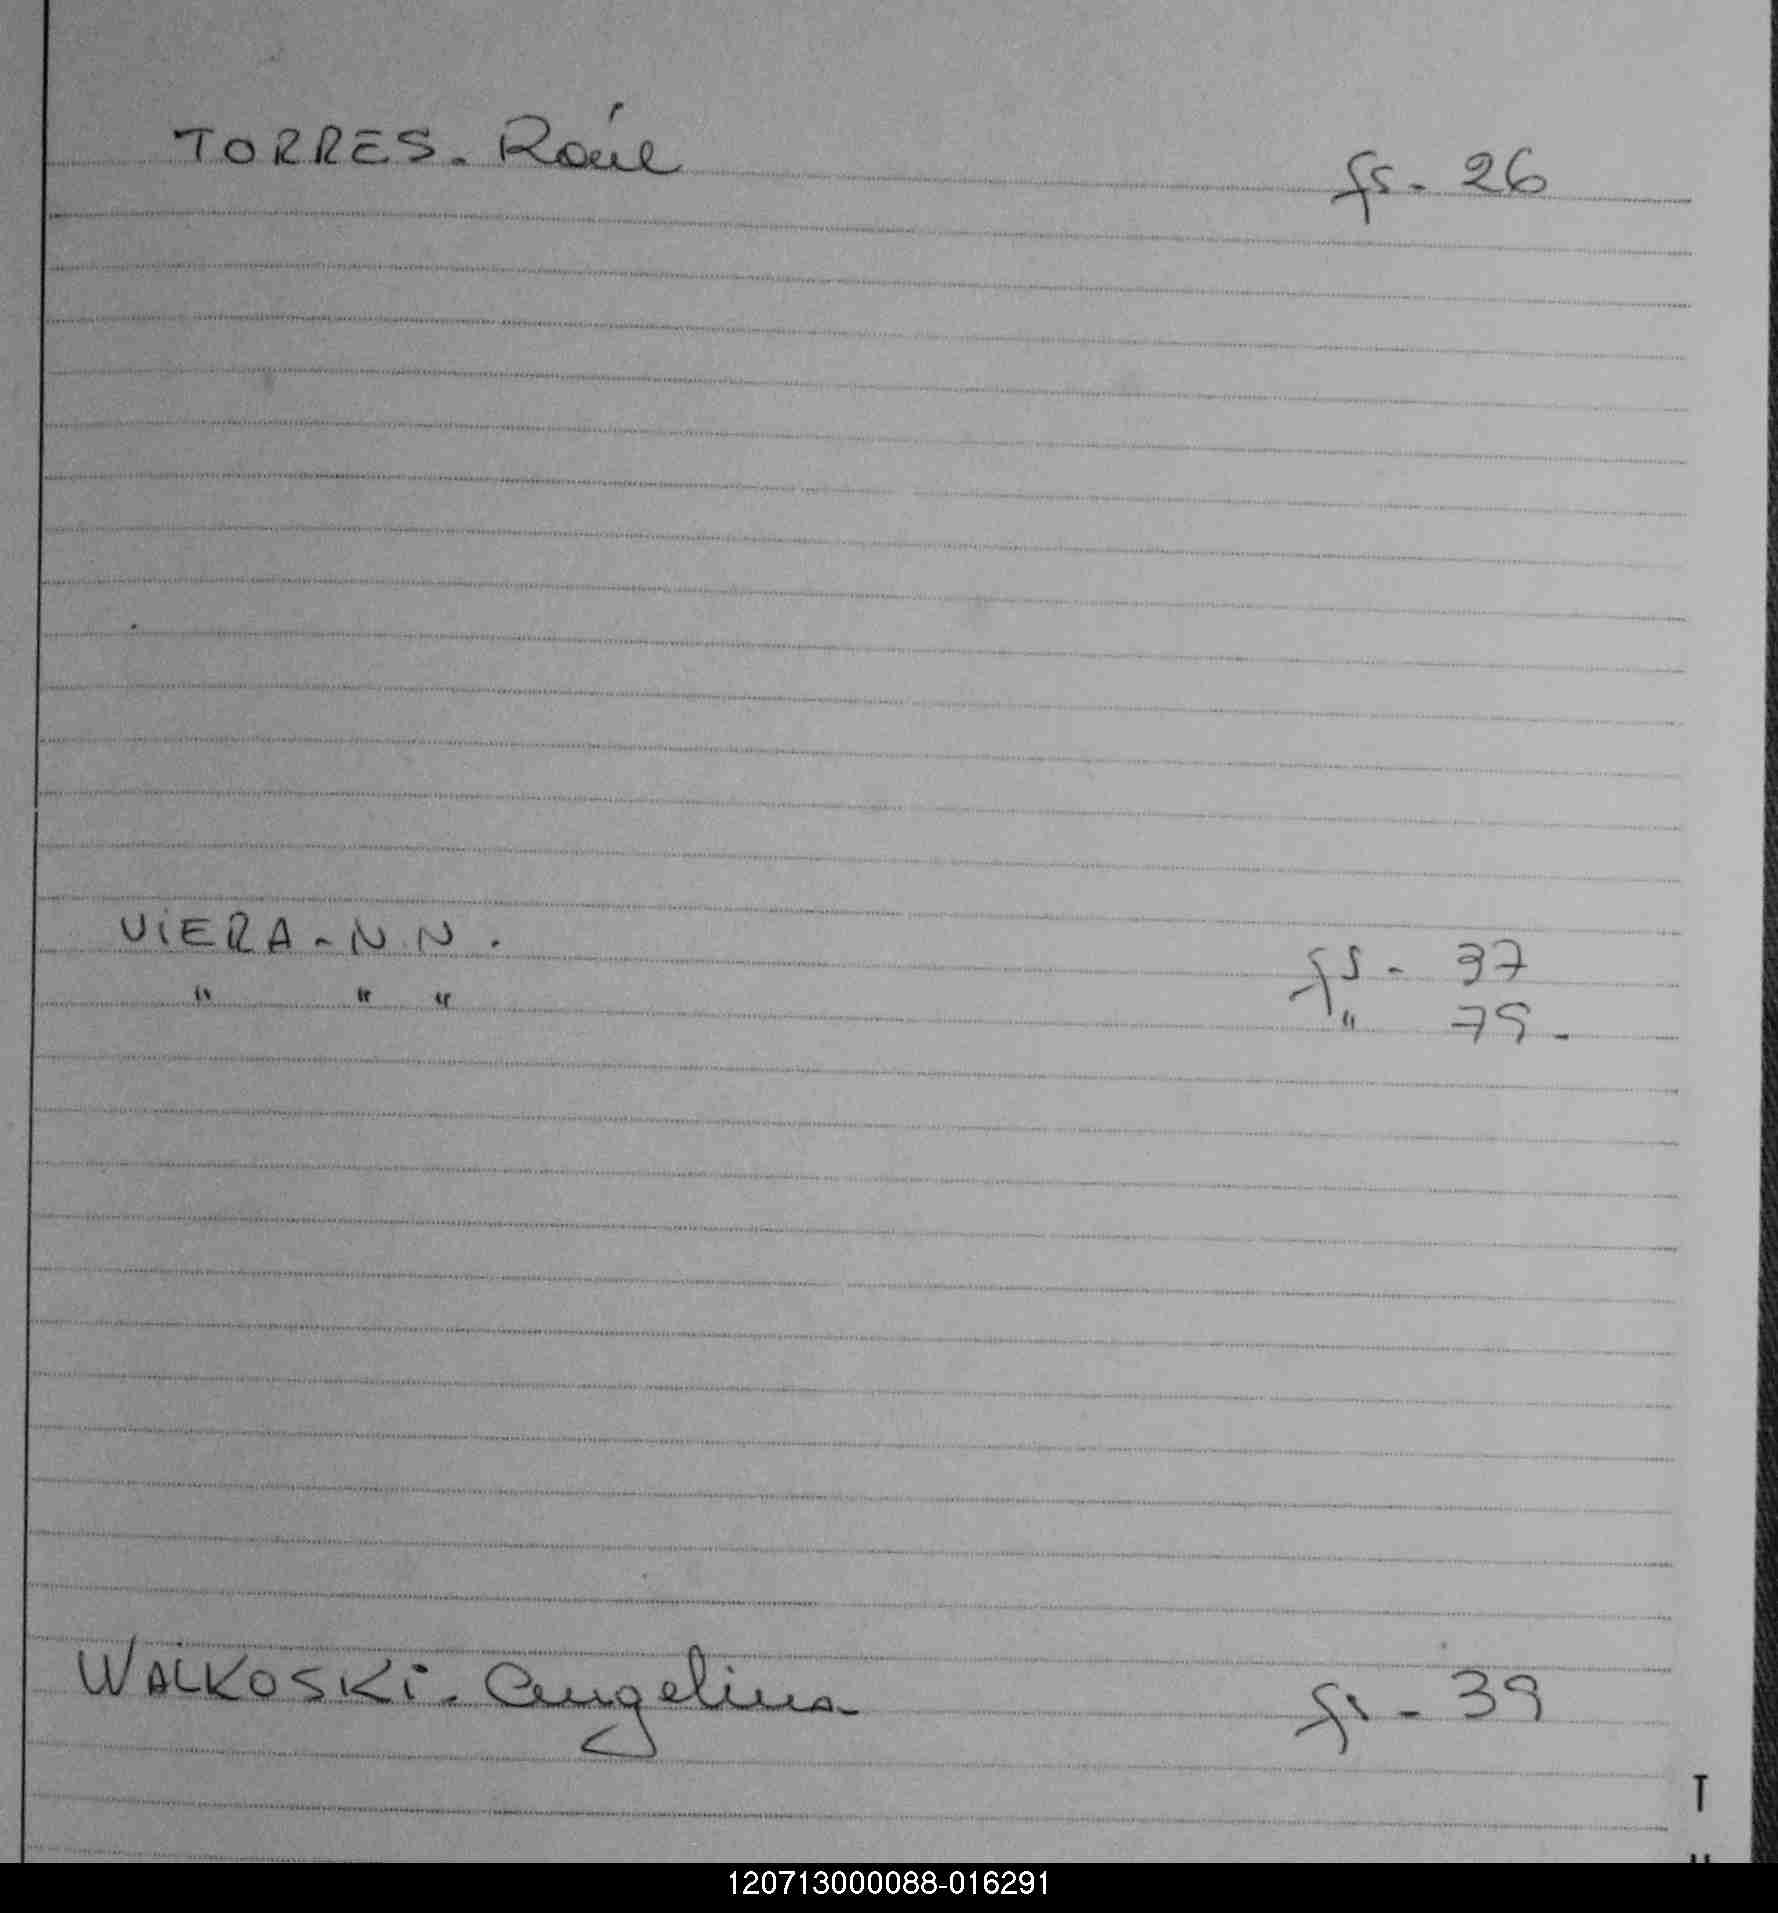 TORRES. Raúl fs. 26
VIERA - N.N. fs - 37
" " " " 79.
WALKOSKI. Angelina fs - 39
T
120713000088-016291